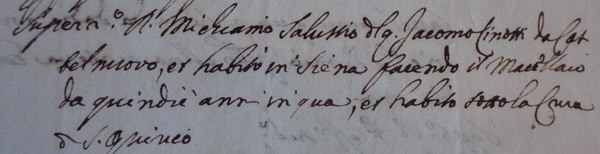 Salustio del q. Jacomo Cinotti da Cas
telnuovo, et habitò in Siena facendo il Macellaio
da quindici anni in qua, et habitò sotto la Cura
di S. Quirico